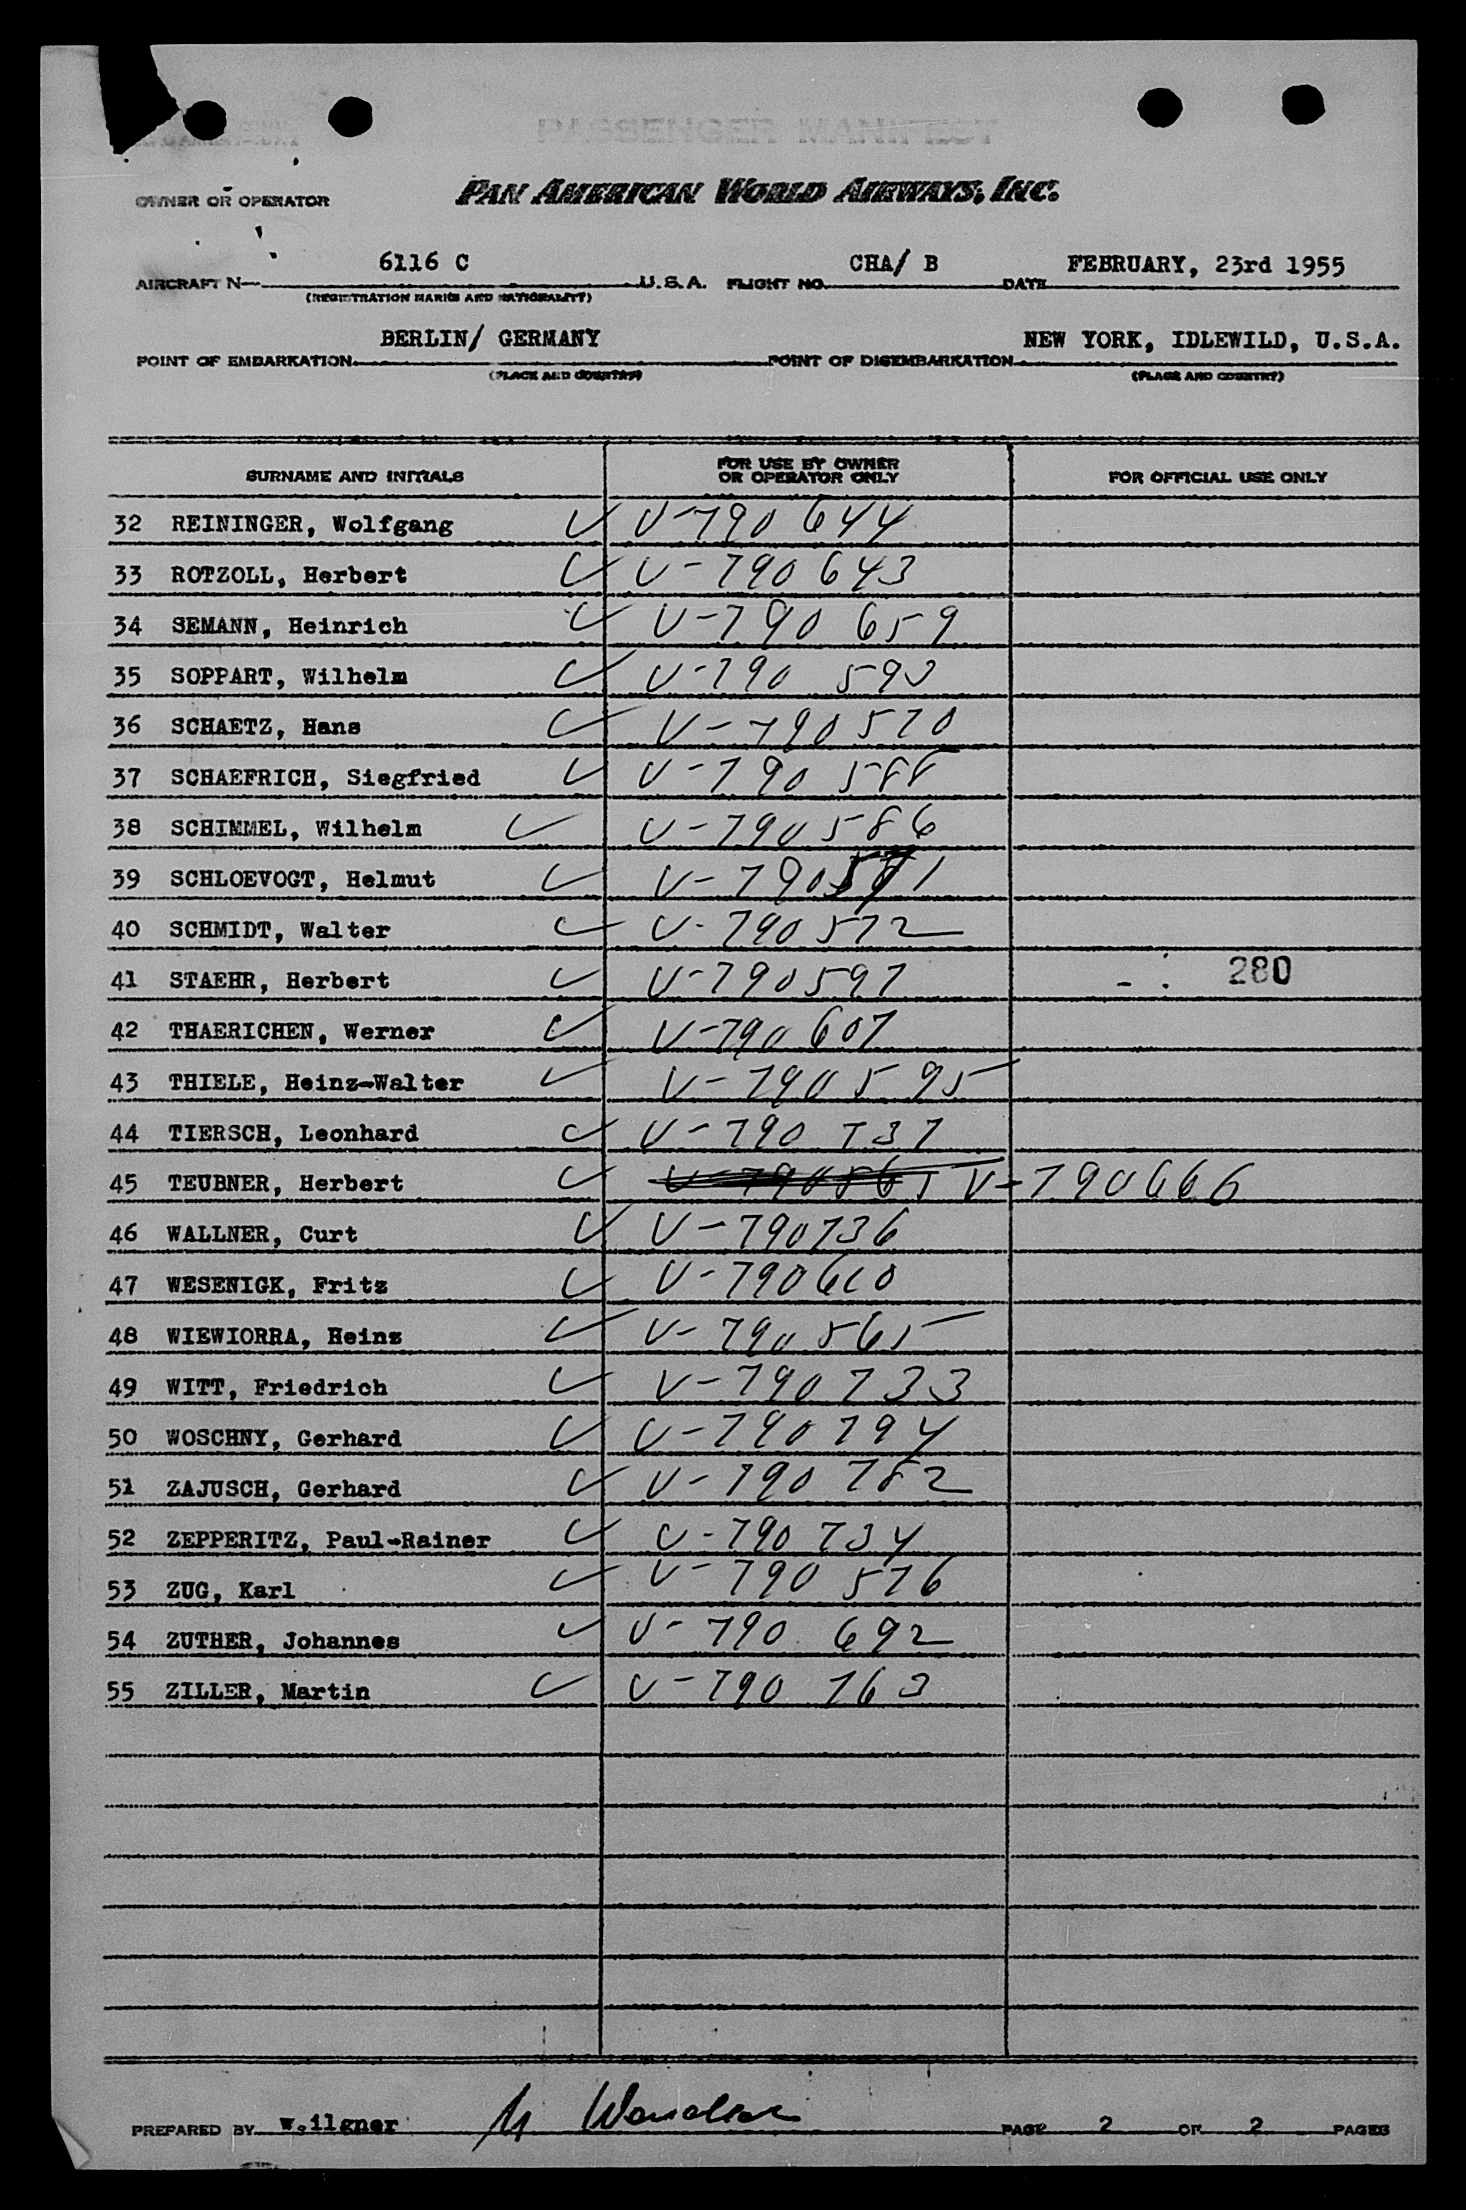 PASSENGER MANIFEST
OWNER OR OPERATOR PAN AMERICAN WORLD AIRWAYS, INC.
AIRCRAFT N— 6116 C U.S.A. FLIGHT NO. CHA/ B DATE FEBRUARY, 23rd 1955
(REGISTRATION MARKS AND NATIONALITY)
POINT OF EMBARKATION BERLIN/ GERMANY POINT OF DISEMBARKATION NEW YORK, IDLEWILD, U.S.A.
(PLACE AND COUNTRY) (PLACE AND COUNTRY)
SURNAME AND INITIALS FOR USE BY OWNER OR OPERATOR ONLY FOR OFFICIAL USE ONLY
32 REININGER, Wolfgang ✓ V-790 644
33 ROTZOLL, Herbert ✓ V-790 643
34 SEMANN, Heinrich ✓ V-790 659
35 SOPPART, Wilhelm ✓ V-790 593
36 SCHAETZ, Hans ✓ V-790 570
37 SCHAEFRICH, Siegfried ✓ V-790 588
38 SCHIMMEL, Wilhelm ✓ V-790586
39 SCHLOEVOGT, Helmut ✓
40 SCHMIDT, Walter ✓ V-790572
41 STAEHR, Herbert ✓ V-790597 280
42 THAERICHEN, Werner ✓ V-790 607
43 THIELE, Heinz-Walter ✓ V-790595
44 TIERSCH, Leonhard ✓ V-790 737
45 TEUBNER, Herbert ✓ V-790666
46 WALLNER, Curt ✓ V-790736
47 WESENIGK, Fritz ✓ V-790610
48 WIEWIORRA, Heinz ✓ V-790565
49 WITT, Friedrich ✓ V-790733
50 WOSCHNY, Gerhard ✓ V-790794
51 ZAJUSCH, Gerhard ✓ V-790 782
52 ZEPPERITZ, Paul-Rainer ✓ V-790 734
53 ZUG, Karl ✓ V-790 576
54 ZUTHER, Johannes ✓ V-790 692
55 ZILLER, Martin ✓ V-790 763
PREPARED BY W.ilgner PAGE 2 OF 2 PAGES